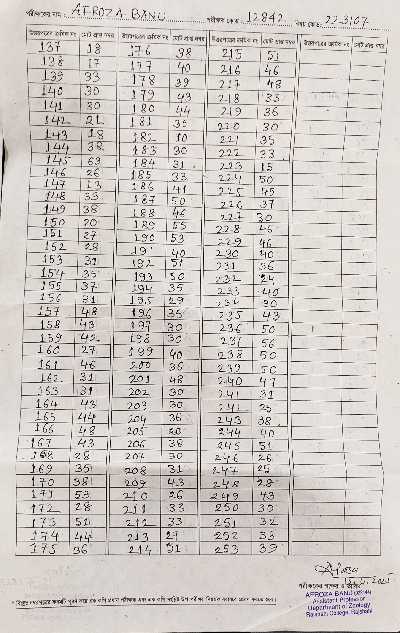 পরীক্ষকের নাম : AFROZA BANU পরীক্ষক কোড : 12842 বিষয় কোড : 223107
উত্তরপত্রের ক্রমিক নং মোট প্রাপ্ত নম্বর উত্তরপত্রের ক্রমিক নং মোট প্রাপ্ত নম্বর উত্তরপত্রের ক্রমিক নং মোট প্রাপ্ত নম্বর
137 18 176 38 215 51
138 17 177 40 216 46
139 33 178 39 217 48
140 30 179 43 218 33
141 30 180 44 219 36
142 21 181 220 30
143 18 182 10 221 35
144 38 183 30 222 33
145 63 184 31 223 15
146 26 185 33 224 50
147 13 186 41 225 45
148 33 187 50 226 37
149 38 188 46 227 30
150 20 189 55 228
151 27 190 53 229 46
152 28 191 40 230 40
153 31 192 51 231 36
154 193 50 232 24
155 37 194 35 233 40
156 31 195 29 234 30
157 48 196 235 43
158 43 197 30 236 50
159 42 198 30 237 56
160 27 199 40 238 50
161 46 200 36 239 50
162 31 201 48 240 47
163 31 202 30 241 31
164 43 203 30 242
165 44 204 36 243 38
166 48 205 244 40
167 43 206 38 245 51
168 28 207 30 246 26
169 35 208 31 247 25
170 38 209 43 248 28
171 53 210 26 249 43
172 28 211 33 250 39
173 50 212 33 251 32
174 44 213 27 252 33
175 36 214 31 253 39
AFROZA BANU
Assistant Professor
Department of Zoology
Rajshahi College, Rajshahi